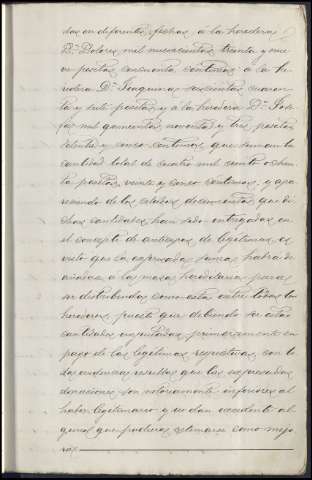 das en diferentes fechas, a la heredera
Dª Dolores mil novecientas treinta y nue-
ve pesetas cincuenta centimos: a la he-
redera Dª Joaquina seiscientas cuaren-
ta y siete pesetas y a la heredera Dª Jose-
fa mil quinientas noventa y tres pesetas
setenta y cinco centimos, que suman la
cantidad total de cuatro mil ciento ochen-
ta pesetas, veinte y cinco centimos, y apa-
reciendo de los citados documentos que di-
chas cantidades han sido entregadas en
el concepto de anticipos de legitimas, es
visto que la expresada suma habrá de
añadirse a la masa hereditaria para
ser distribuida como esta entre todas las
herederas, puesto que debiendo ser estas
cantidades imputadas primeramente en
pago de las legitimas respectivas con to-
da evidencia resulta que las expresadas
donaciones son notoriamente inferiores al
haber legitimario y no dan excedente al-
guno que pudiera estimarse como mejo-
ras